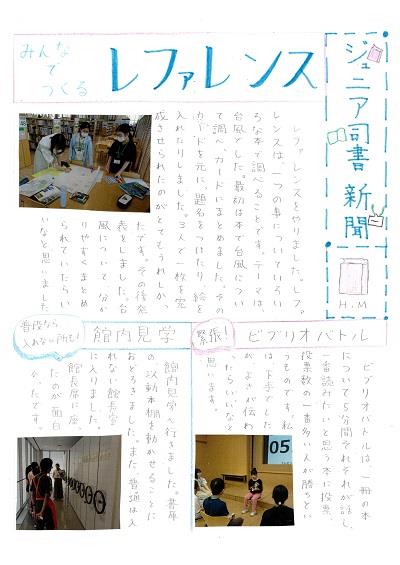 ジュニア司書新聞
H.M
みんな
で
つくる
レファレンス
レファレンスをやりました。レファ
レンスは、一つの事についていろい
ろな本で調べることです。テーマは
台風でした。最初は本で台風につい
て調べ、カードにまとめました。その
カードを元に題名をつけたり、絵を
入れたりしました。3人で一枚を完
成させられたのがとてもうれしか
ったです。その後発
表をしました。台
風について、分か
りやすくまとめ
られていたらい
いなと思いました
緊張!
ビブリオバトル
ビブリオバトルは、一冊の本
について5分間それぞれが話し、
一番読みたいと思う本に投票、
投票数の一番多い人が勝ちとい
うものです。私
は下手でした
がよさが伝わ
ったらいいなと
思います。
普段なら
入れない所も!
館内見学
館内見学へ行きました。書庫
の移動本棚を動かせることに
おどろきました。また、普通は入
れない館長室
に入りました。
館長席に座
れたのが面白
かったです。
05